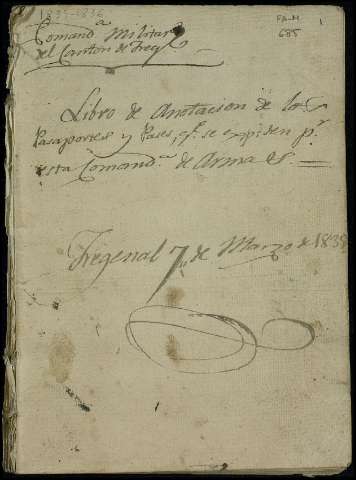 1835-1836
FA.M
685
1
Comand.ª Militar
del Canton de Freg.l
Libro de Anotacion de los
Pasaportes y Pases, q.e se expiden p.r
esta Comand.ª de Armas.
Fregenal 7,, de Marzo de 1835